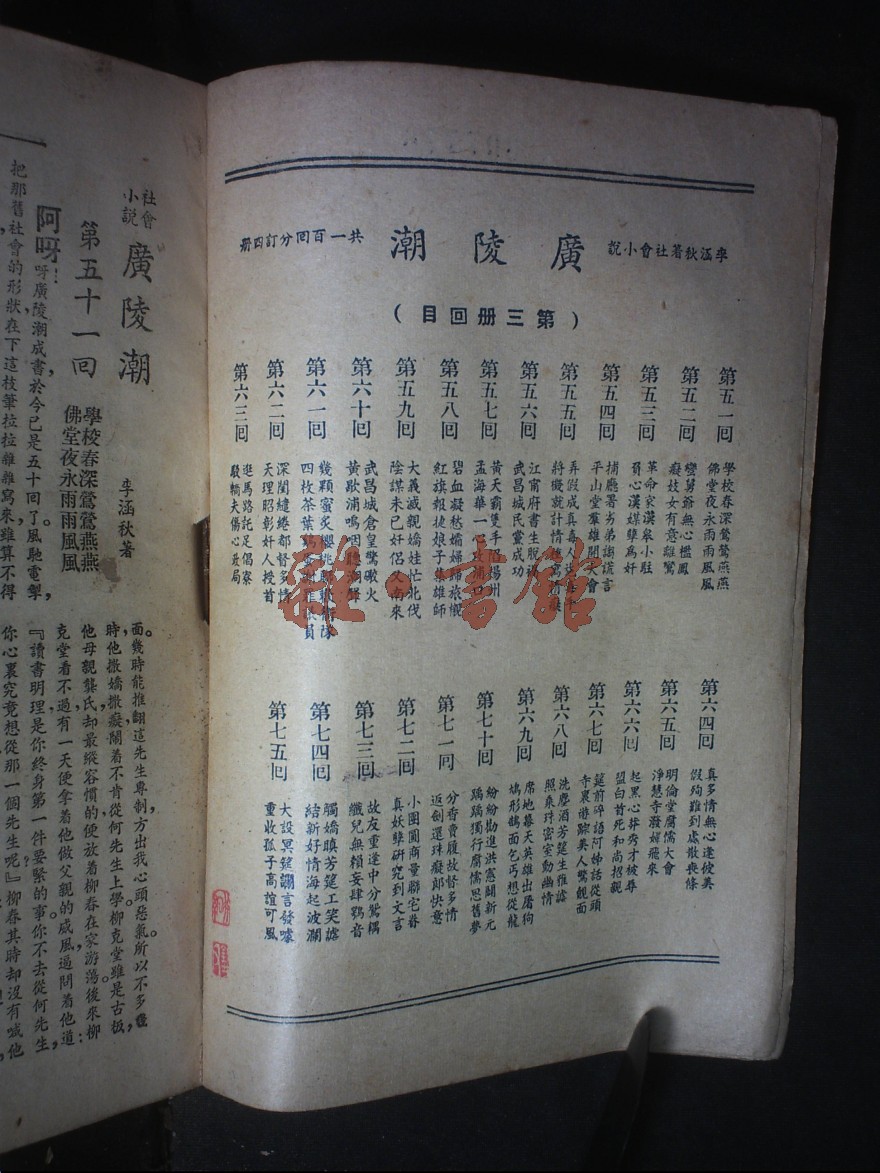 李涵秋著社會小說
廣陵潮
共一百回分訂四册
（第三册回目）
第五一回
學校春深鶯鶯燕燕
佛堂夜永雨雨風風
第五二回
孌舅爺無心檻鳳
癡妓女有意離鸞
第五三回
革命家漢泉小駐
負心漢媒孽為奸
第五四回
捕廳署夯弟謅謊言
平山堂羣雄開大會
第五五回
弄假成真毒人
將機就計情
第五六回
江甯府書生脫禍
武昌城民黨成功
第五七回
黃天霸雙手陷揚州
孟海華一
第五八回
碧血凝愁孀婦歸旅櫬
紅旗報捷娘子集雄師
第五九回
大義滅親嬌娃忙北伐
陰謀未已奸侶又南來
第六十回
武昌城倉皇驚礮火
黃歇浦嗚咽
第六一回
幾顆蜜炙櫻桃
四枚茶葉鷄蛋
第六二回
深閨繾綣都督多情
天理昭彰奸人授首
第六三回
逛馬路託足倡寮
毆轎夫傷心政局
第六四回
真多情無心逢佼美
假殉難到處散喪條
第六五回
明倫堂腐儒大會
淨慧寺潑婦飛來
第六六回
起黑心莽秀才被辱
盟白首死和尚招親
第六七回
筵前碎語阿姊話從頭
寺裏游踪美人驚覿面
第六八回
洗塵酒芳筵生雅謔
照乘珠密室動幽情
第六九回
席地幕天英雄出屠狗
鳩形鵠面乞丐想從龍
第七十回
紛紛勸進洪憲鬧新元
踽踽獨行腐儒思舊夢
第七一回
分香賣履故督多情
返劍還珠癡郎快意
第七二回
小團圓商量聯宅眷
真妖孽研究到文言
第七三回
故友重逢中分鴛耦
孅兒無賴妄肆鴞音
第七四回
觸嬌嗔芳筵工笑謔
結新好情海起波瀾
第七五回
大設冥筵讕言發噱
重收孤子高誼可風
雜·書館
社會小說
廣陵潮
李涵秋著
第五十一回
學校春深鶯鶯燕燕
佛堂夜永雨雨風風
阿呀！呀廣陵潮成書於今已是五十回了。風馳電掣，
把那舊社會的形狀在下這枝筆拉拉雜雜寫來雖算不得
面。幾時能推翻這先生專制方出我心頭惡氣所以不多幾
時他撒嬌撒癡鬧着不肯從何先生上學柳克堂雖是古板，
他母親龔氏却最縱容慣的便放着柳春在家游蕩後來柳
克堂看不過有一天便拿着他做父親的威風逼問着他道：
『讀書明理是你終身第一件要緊的事你不去從何先生，
你心裏究竟想從那一個先生呢？』柳春其時却沒有喊他